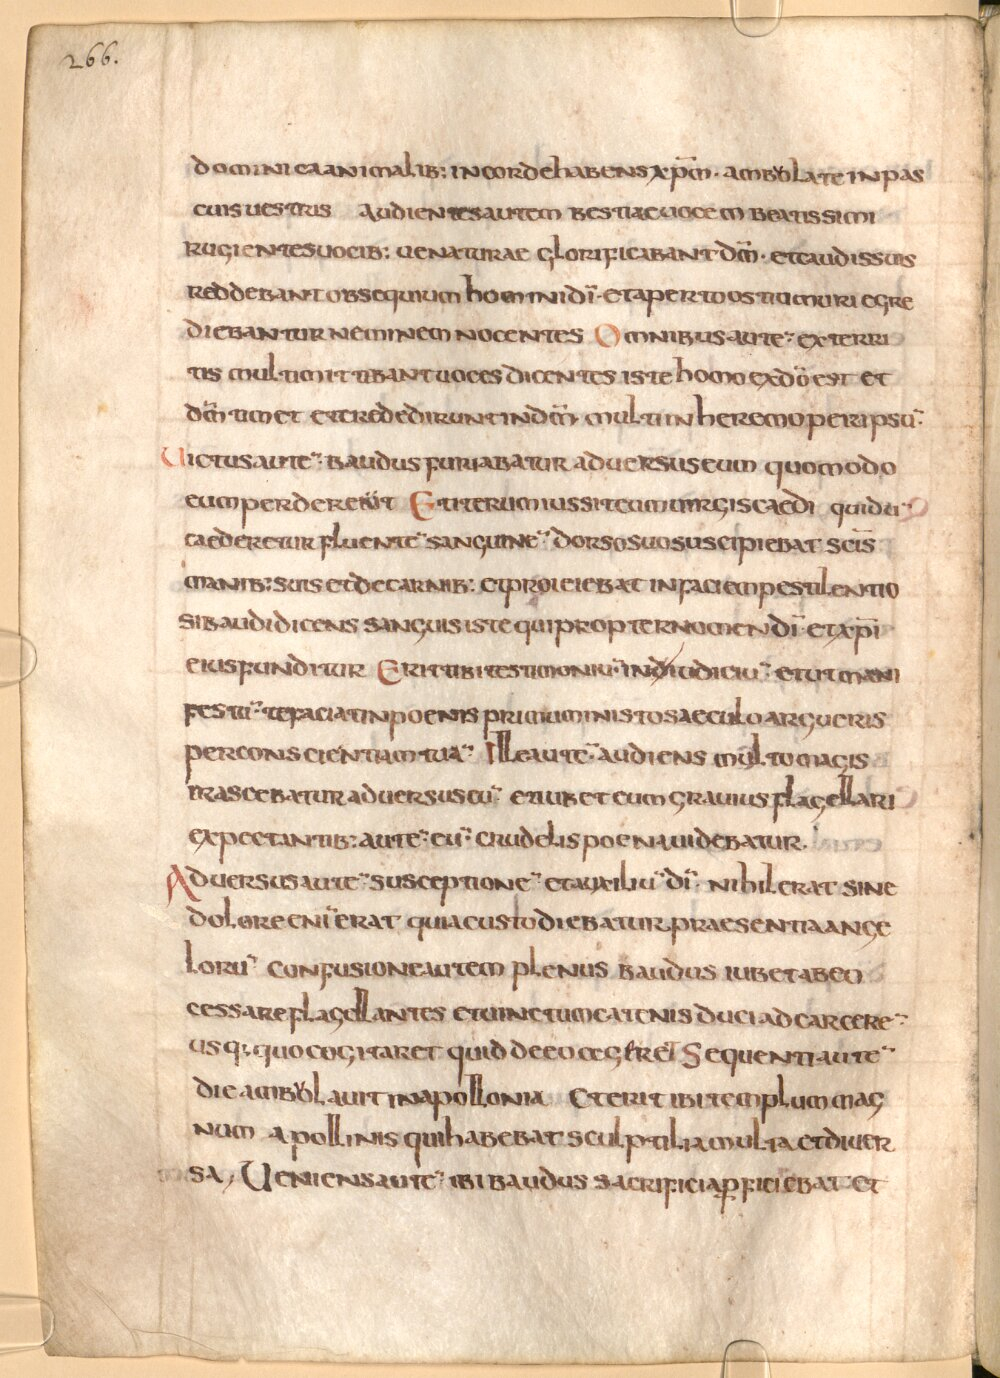 266.
dominica animalib: in corde habens xp̄m · ambulate in pas
cuis uestris audientes autem bestiae uocem beatissimi
rugientes uocib: ue naturae glorificabant dm̄ · et caudis suis
reddebant obsequium homini dī · et aperto ostiu muri egre
diebantur neminem nocentes Omnibus autē exterri
tis multi mittibant uoces dicentes iste homo ex dō est et
dm̄ timet et crededirunt in dm̄ multi in heremo per ipsū
Uictus autē baudus furiabatur aduersus eum quomodo
eum perderet Et iterum iussit eum uirgis caedi qui dū
caederetur fluentē sanguinē dorso suo suscipiebat scīs
manib: suis et de carnib: et proieiebat in faciem pestilentio
si baudi dicens sanguis iste qui propter nomen dī et xp̄i
eius funditur Erit tibi testimoniū in dī iudiciū et ut mani
festū te faciat in poenis primum in isto saeculo argueris
per conscientiam tuā Ille autē audiens multo magis
irascebatur aduersus eū et iubet eum grauius flagellari
expectantib: autē eū crudelis poena uidebatur.
Aduersus autē susceptionē et auxiliū dī · nihil erat sine
dolore enī erat quia custodiebatur praesentia ange
lorū confusione autem plenus baudus iubet ab eo
cessare flagellantes et uinctum catenis duci ad carcerē
usq; quo cogitaret quid de eo Sequenti autē
die ambulauit in apollonia Et erit ibi templum mag
num apollinis qui habebat sculptilia multa et diuer
sa, Ueniens autē ibi baudus sacrificia ꝑficiebat et